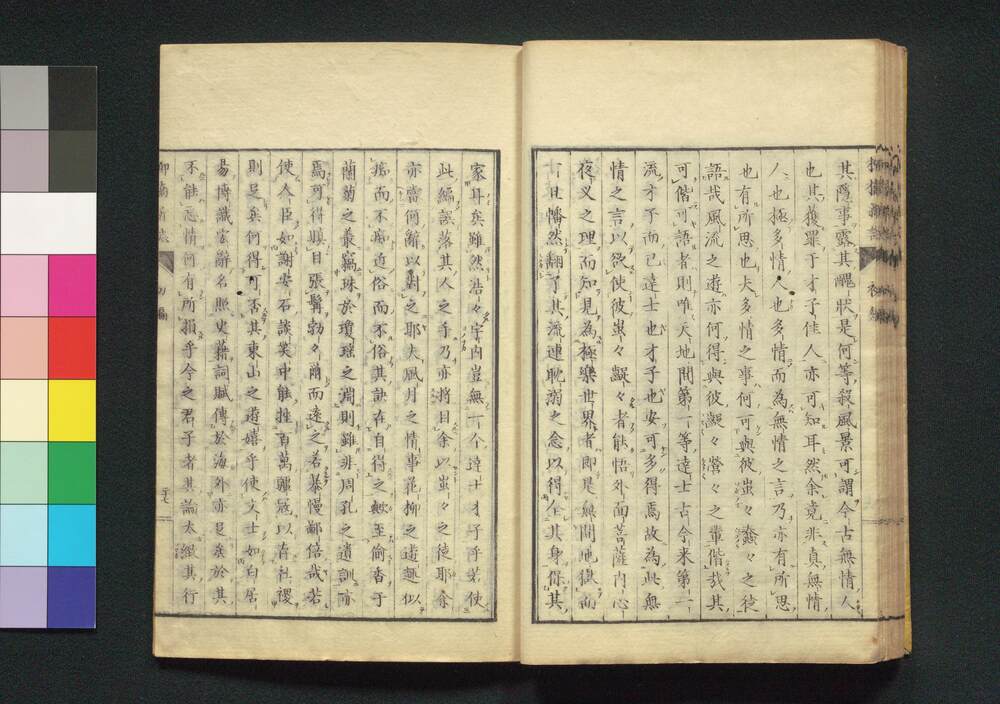 其隱事露其醜狀是何等殺風景可謂今古無情人
也其獲罪于才子佳人亦可知耳然余竟非真無情
人也極多情人也多情而為無情之言乃亦有所思
也有所思也夫多情之事何可與彼蚩々蠢々之徒
語哉風流之遊亦何得與彼齷々營々之輩偕哉其
可偕可語者則唯天地間第一等達士古今來第一
流才子而已達士也才子也安可多得焉故為此無
情之言以欲使彼蚩々齷々者能悟外面菩薩内心
夜叉之理而知見為極樂世界者即是無間地獄而
一旦幡然翻了其流連耽溺之念以得全其身保其
家耳矣雖然浩々宇内豈無一个達士才子乎若使
此編誤落其人之手乃亦將目余以蚩々之徒耶余
亦當何辭以對之耶夫風月之情事花柳之遊趣似
痴而不痴近俗而不俗其訣在自得之歟至偷香于
蘭菊之叢竊珠於瓊瑤之淵則雖非周孔之遺訓亦
焉可得瞋目張髯勃々爾而遠之若暴慢鄙倍哉若
使人臣如謝安石談笑中能挫百萬驕寇以存社稷
則足矣何得可否其東山之遊嬉乎使文士如白居
易博識宏辭名照史籍詞賦傳於海外亦足矣於其
不能忘情何有所損乎今之君子者其論太緻其行
初編